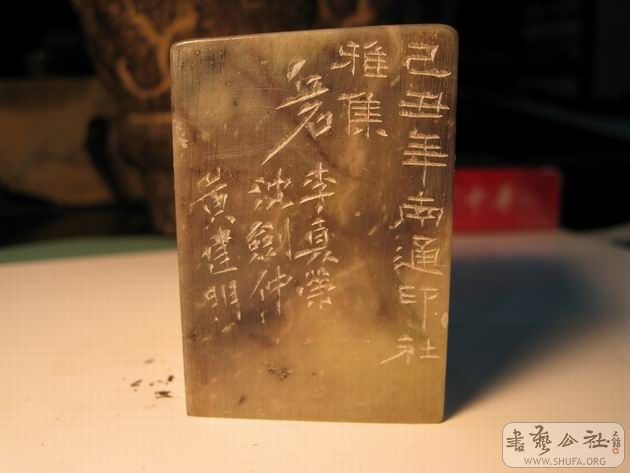 己丑年南通印社
雅集
李真榮
沈劍仲
黃建明
書藝公社
WWW.SHUFA.ORG